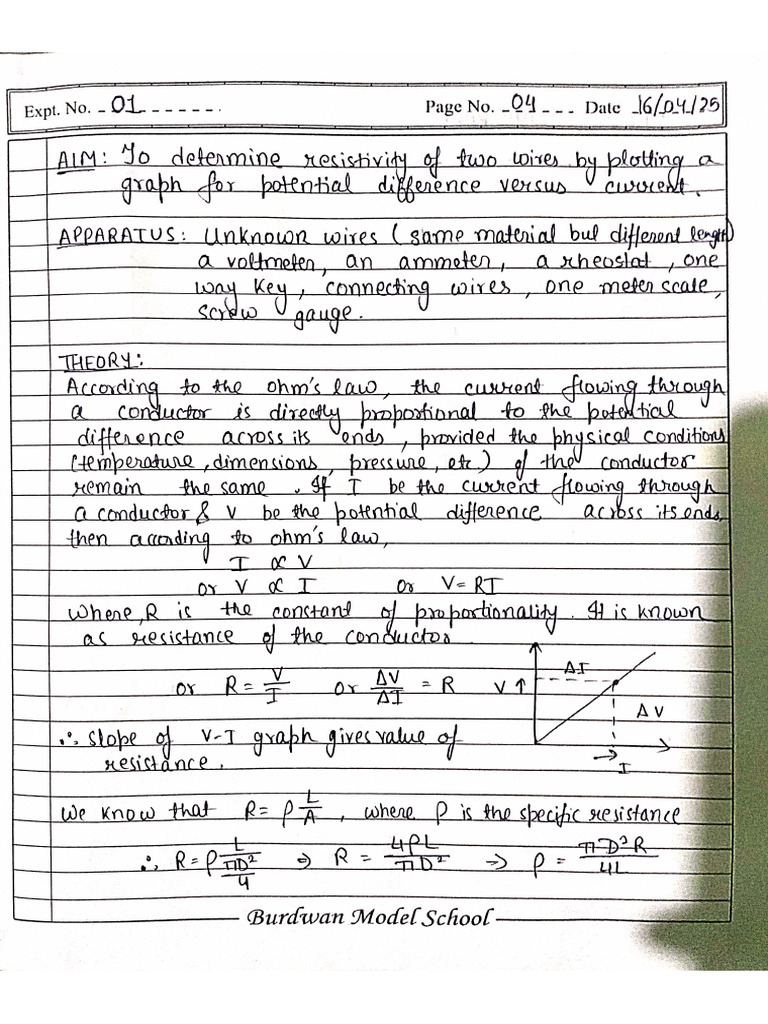 Expt. No. 01 Page No. 04 Date 16/04/25
AIM: To determine resistivity of two wires by plotting a
graph for potential difference versus current.
APPARATUS: Unknown wires (same material but different length)
a voltmeter, an ammeter, a rheostat, one
way key, connecting wires, one meter scale,
screw gauge.
THEORY:
According to the ohm's law, the current flowing through
a conductor is directly proportional to the potential
difference across its ends, provided the physical conditions
(temperature, dimensions, pressure, etc.) of the conductor
remain the same. If I be the current flowing through
a conductor & V be the potential difference across its ends,
then according to ohm's law,
I ∝ V
or V ∝ I or V = RI
Where, R is the constant of proportionality. It is known
as resistance of the conductor
or R = V/I or ΔV/ΔI = R V↑ ΔI
ΔV
∴ slope of V-I graph gives value of
resistance. → I
We know that R = ρ L/A, where ρ is the specific resistance
∴ R = ρ L/(πD²/4) ⇒ R = 4ρL/πD² ⇒ ρ = πD²R/4L
Burdwan Model School